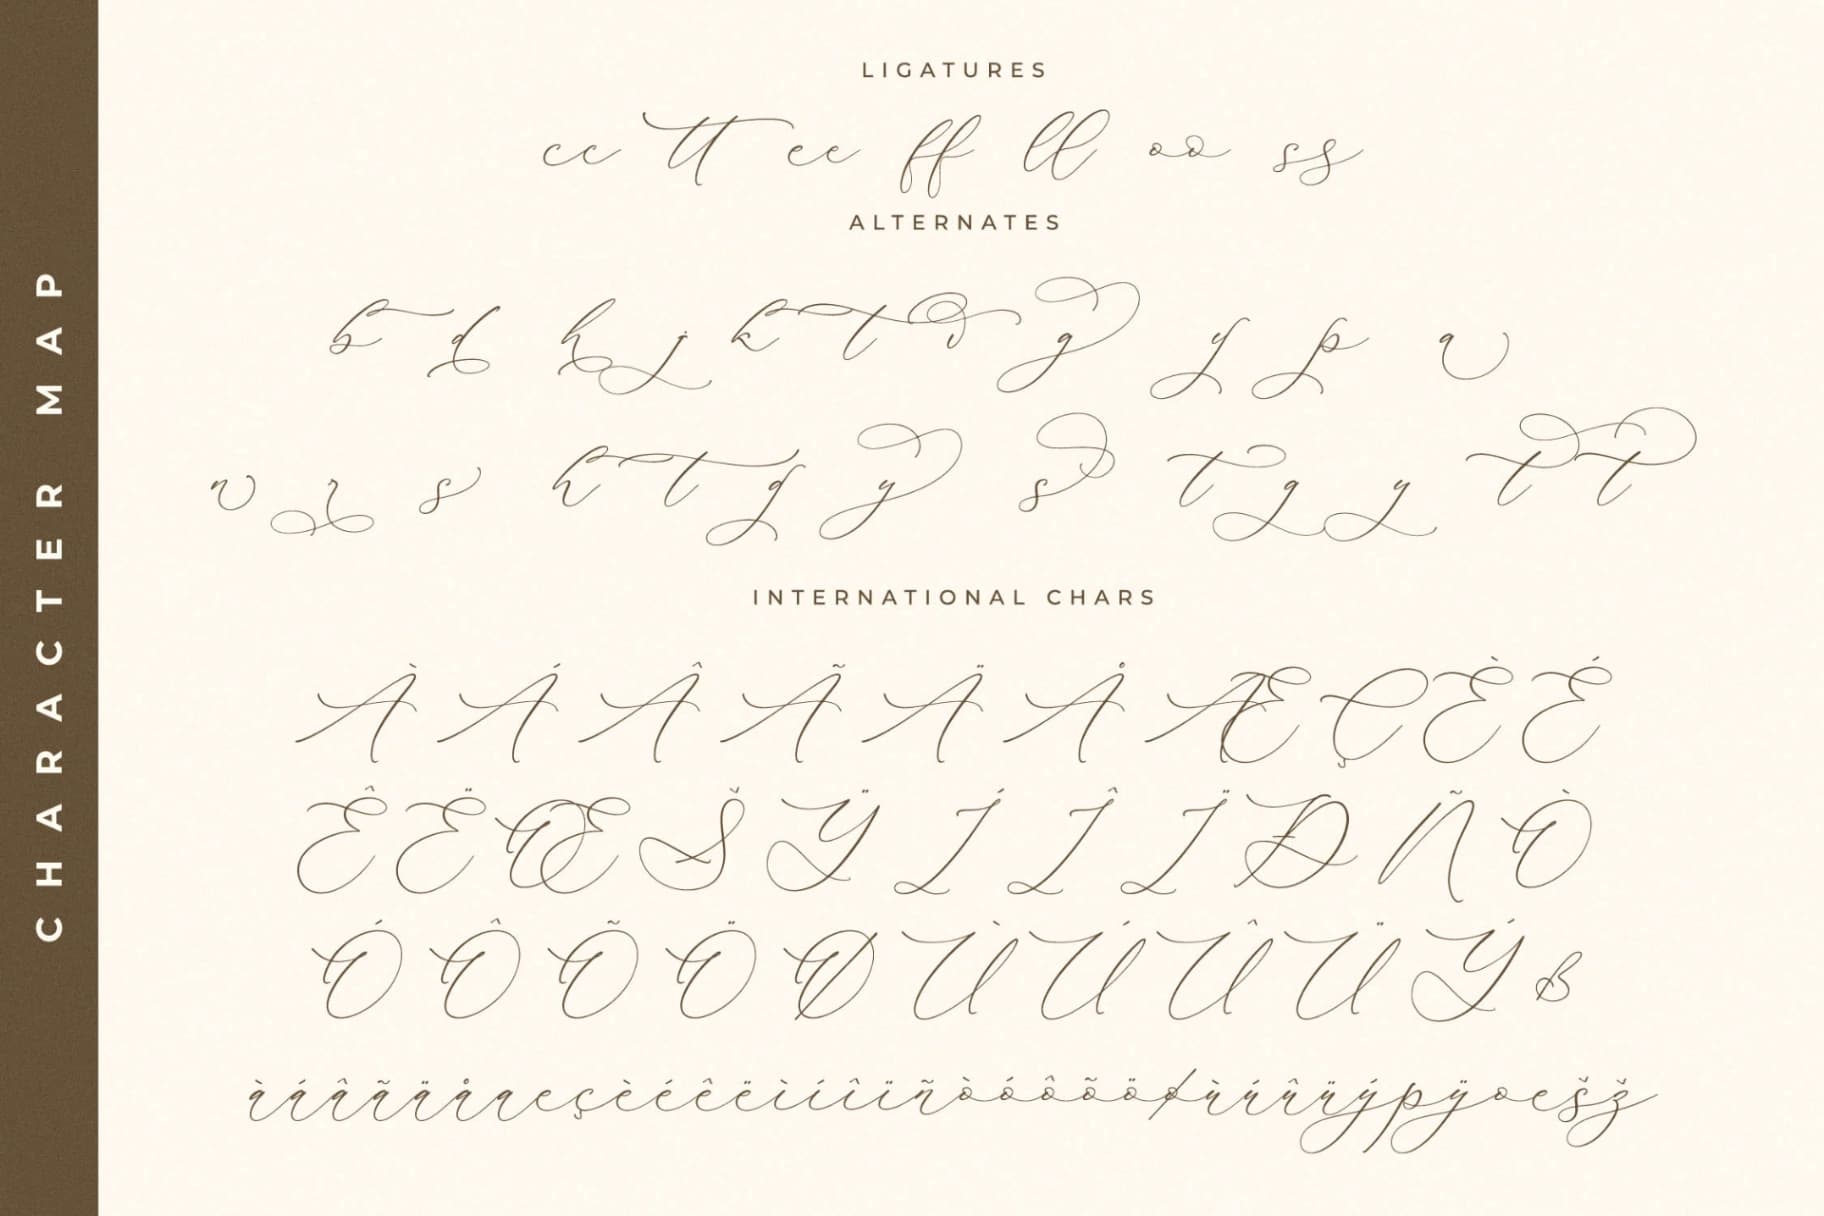 CHARACTER MAP
LIGATURES
cc tt ee ff ll oo ss
ALTERNATES
b d h j k t s g y p a
n r s h t g y s t g y t t
INTERNATIONAL CHARS
À Á Â Ã Ä Å Æ Ç È É
Ê Ë Œ Š Ÿ Í Î Ï Ð Ñ Ò
Ó Ô Õ Ö Ø Ù Ú Û Ü Ý ß
àáâãäåæçèéêëìíîïñòóôõöøùúûüýþÿœšž